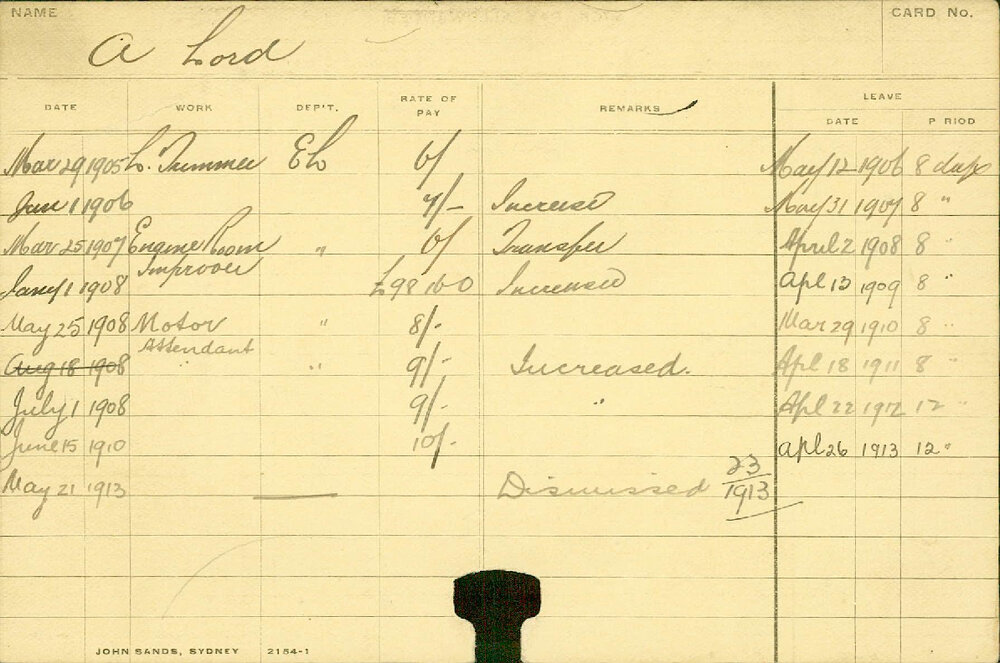 NAME
CARD No.
A Lord
DATE WORK DEP'T. RATE OF PAY REMARKS LEAVE
DATE P RIOD
Mar 29 1905 L. Trimmer EL 6/ May 12 1906 8 days
Jan 1 1906 7/- Increase May 31 1907 8 "
Mar 25 1907 Engine Room " 6/ Transfer April 2 1908 8 "
Improver
Jany 1 1908 £98 16 0 Increased Apl 13 1909 8 "
May 25 1908 Motor " 8/- Mar 29 1910 8 "
Attendant
Aug 18 1908 " 9/- Increased. Apl 18 1911 8 "
July 1 1908 9/- " Apl 22 1912 12 "
June 15 1910 10/- Apl 26 1913 12 "
May 21 1913 Dismissed 23/1913
JOHN SANDS, SYDNEY 2154-1